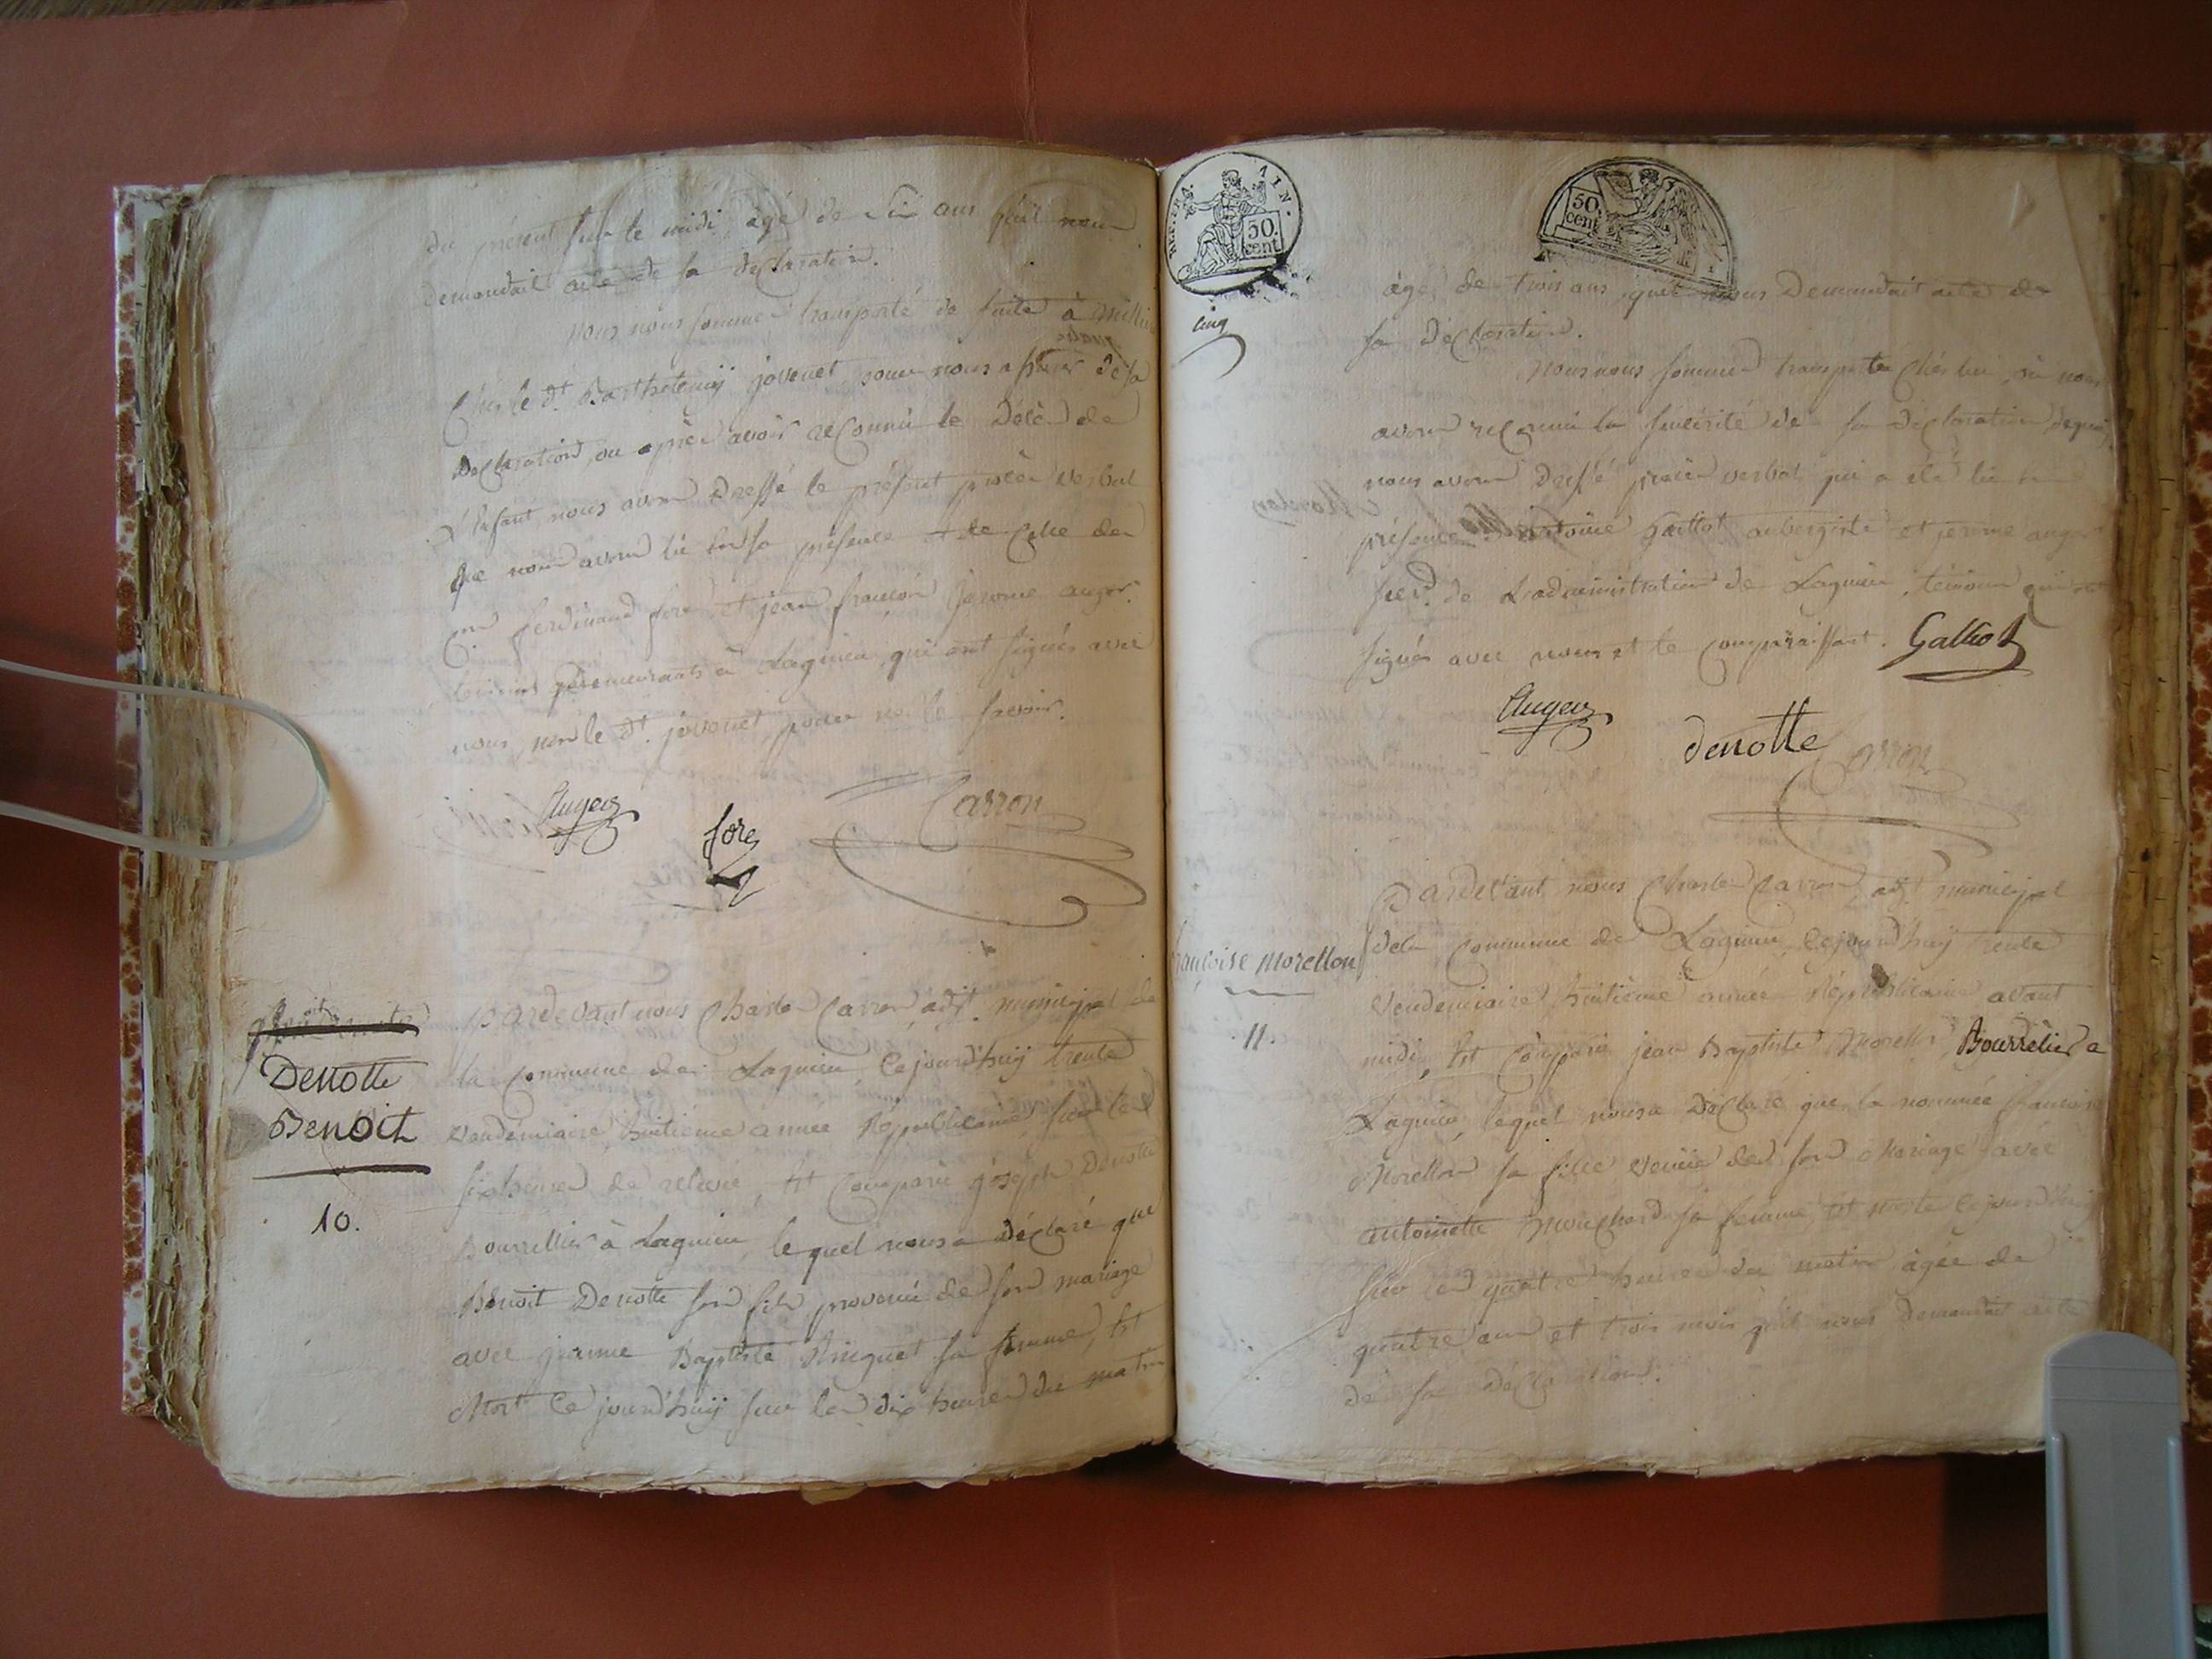 du présent sur le midi, âgé de six ans qu'il nous
demandait acte de sa declaration.
nous nous sommes transporté de suite à
Chés le dt. Barthelemÿ jovenet pour nous assurer de sa
declaration, ou après avoir reconnu le Décès de
l'enfant nous avons Dressé le présent procès verbal
que nous avons lû en sa présence et de celle des
Cns ferdinand fore et jean françois Jerome auger
témoins demeurants à Lagnieu, qui ont signés avec
nous, non le dt. jovenet, pour ne le savoir.
Augers
fore
Carron
Denotte
Benoit
10.
Pardevant nous Charles Carron, adjt. municipal de
la Commune de Lagnieu, Cejourd'huÿ trente
vendémiaire, huitième année Republicaine, sur les
six heures de relevée, Est Comparu joseph Denotte
Bourrellier à Lagnieu, lequel nous a Déclaré que
Benoit Denotte son fils provenu de son mariage
avec jeanne Baptiste sa femme, Est
Mort Ce jourd'huÿ sur les dix heures du matin
REP. FRA. AIN.
50. cent
50. cent
cinq
âgé de trois ans, qu'il nous Demandait acte de
sa Declaration.
Nous nous sommes transporté Chés lui, où nous
avons reconnu la sincérité de sa declaration, de quoi
nous avons Dressé procès verbal qui a été lû en
présence antoine Galliot aubergiste et jerome auger
secre. de L'administration de Lagnieu, témoins qui ont
signés avec nous et le Comparaissant. Galliot
Augers
denotte
Carron
françoise Morellon
11.
Pardevant nous Charles Carron, adjt. municipal
de la Commune de Lagnieu, Cejourd'huÿ trente
Vendemiaire huitième année Républicaine avant
midi, Est Comparu jean Baptiste Morellon Bourrelier a
Lagnieu, lequel nous a Déclaré que la nommée francoise
Morellon sa fille venüe de son Mariage avec
antoinette Mouchard sa femme, Est morte Cejourd'huÿ
sur les quatre heures du matin âgée de
quatre ans et trois mois qu'il nous Demandait acte
de sa Déclaration.